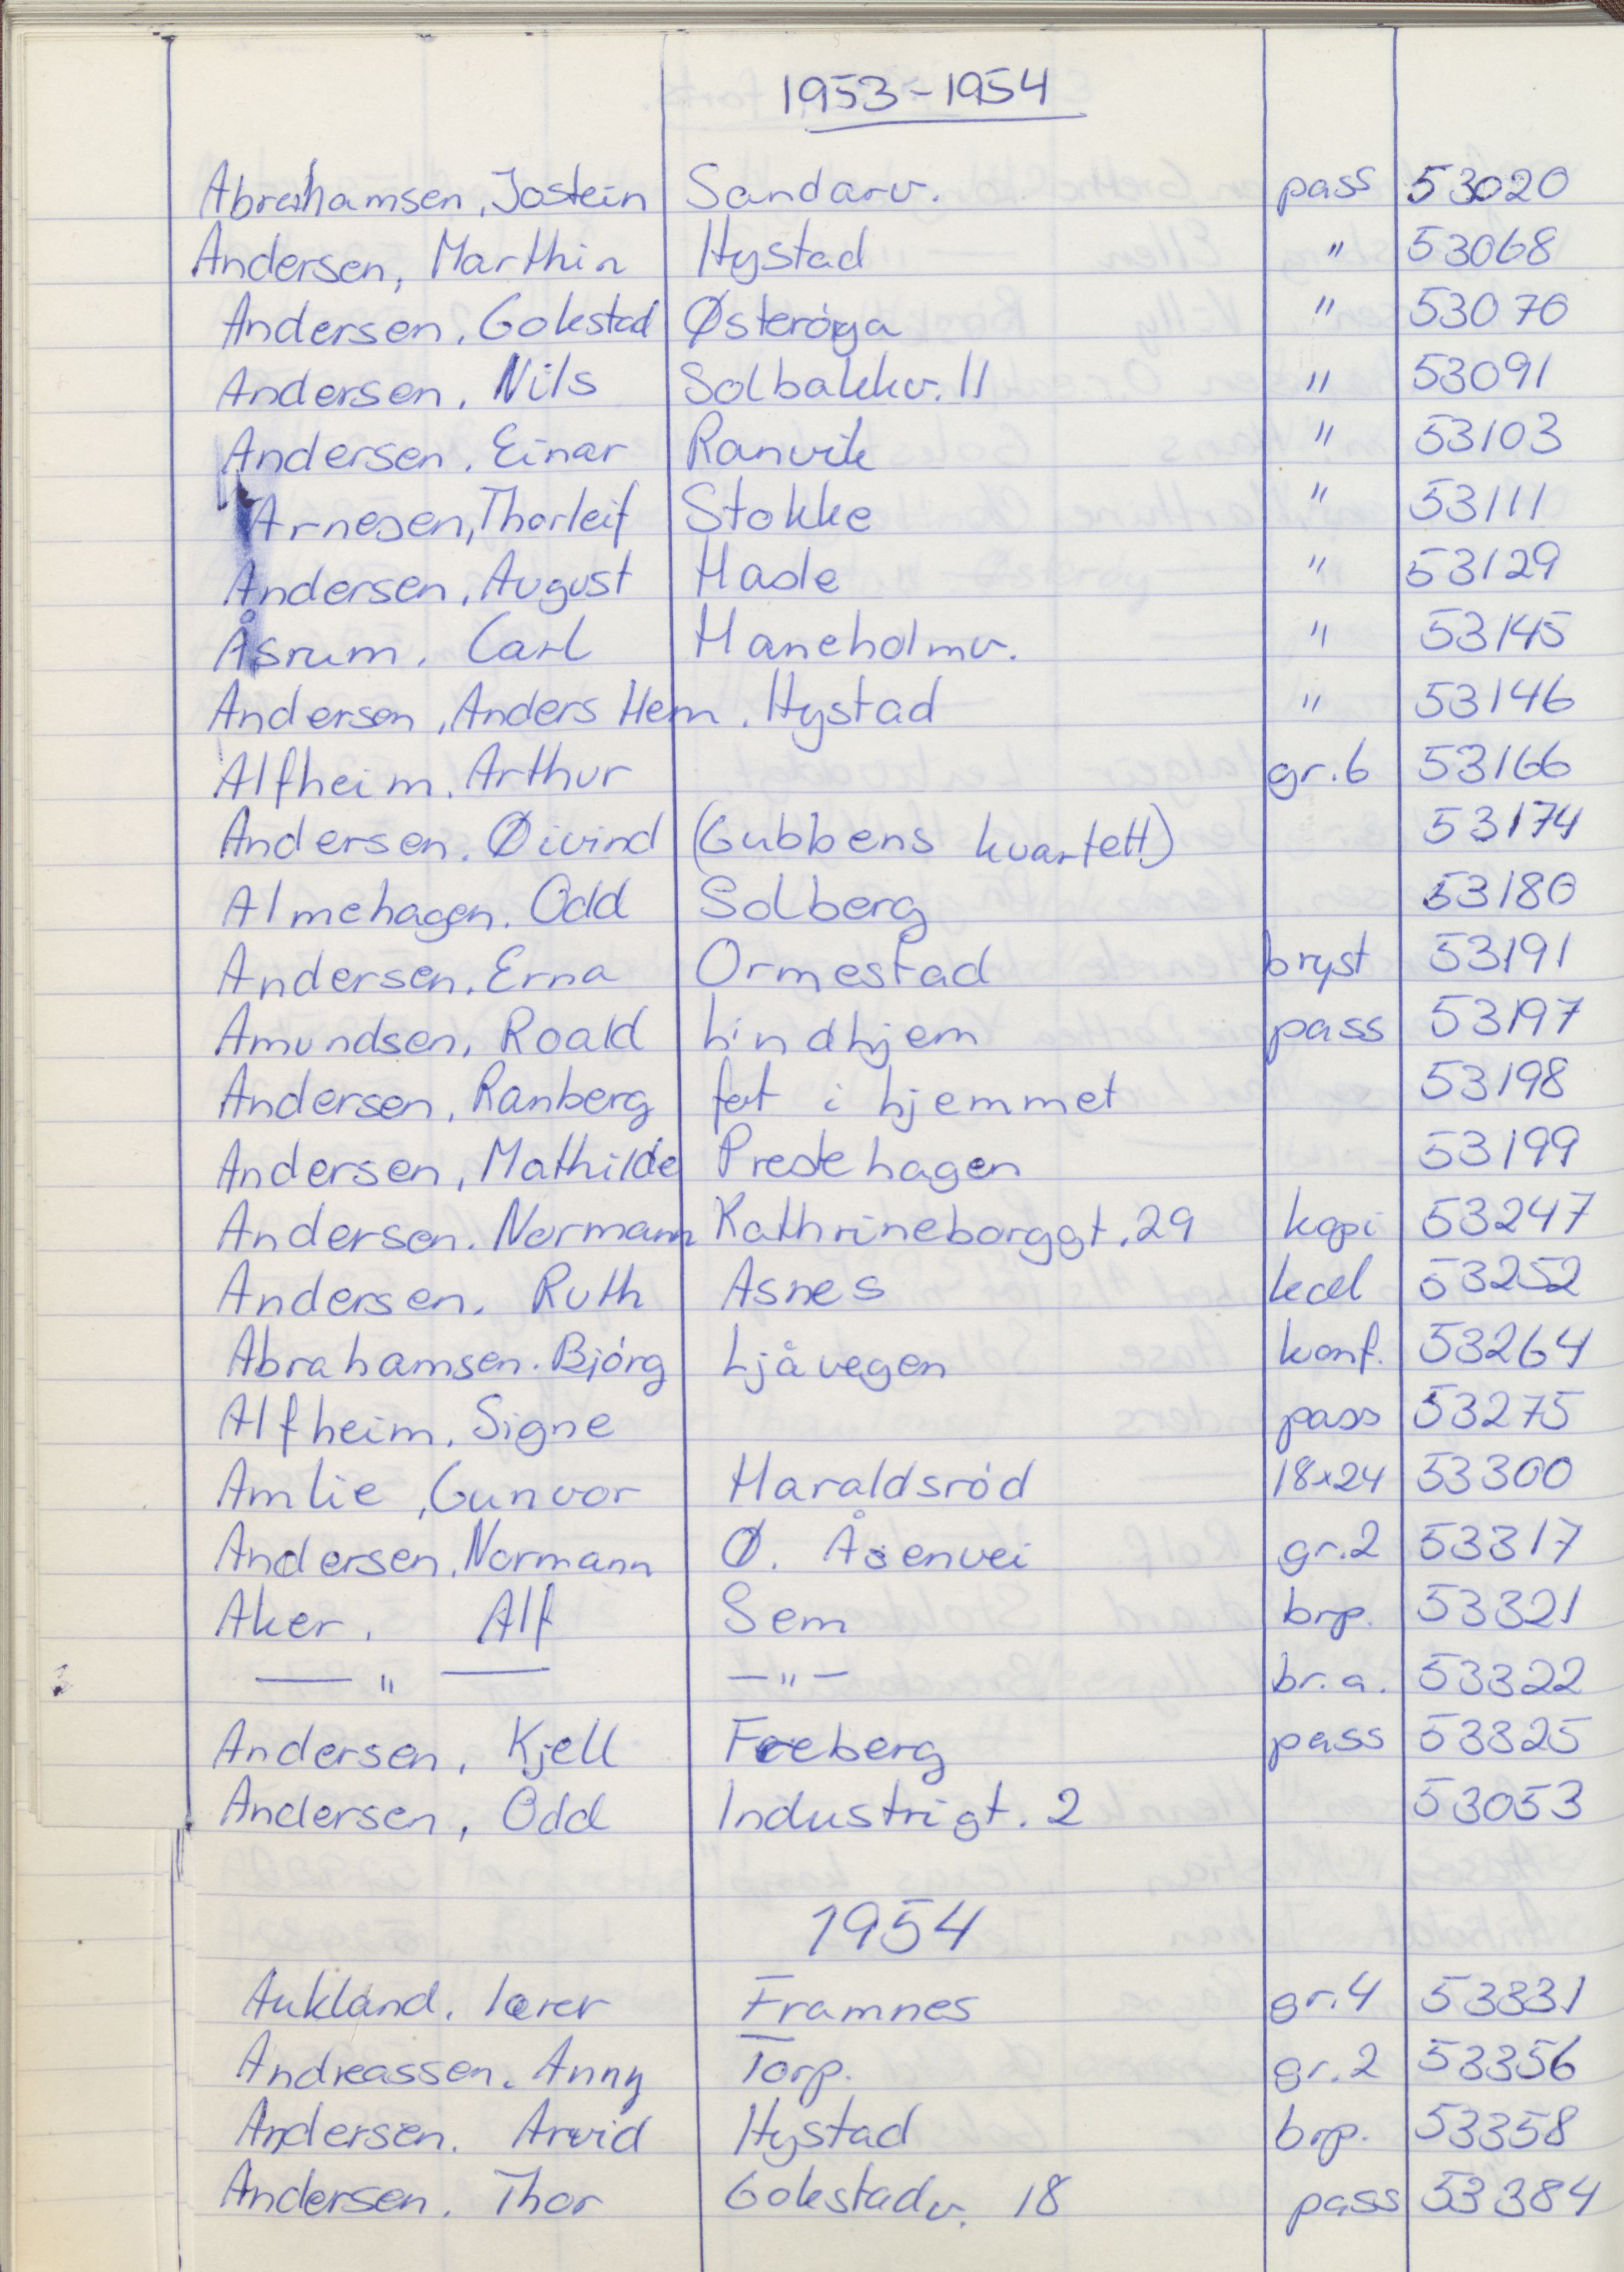 1953-1954
Abrahamsen, Jostein Sandarv. pass 53020
Andersen, Marthin Hystad " 53068
Andersen, Gokstad Østerøya " 53070
Andersen, Nils Solbakkv. 11 " 53091
Andersen, Einar Ranvik " 53103
Arnesen, Thorleif Stokke " 53111
Andersen, August Hasle " 53129
Åsrum, Carl Haneholmv. " 53145
Andersen, Anders Hem. Hystad " 53146
Alfheim, Arthur gr.6 53166
Andersen, Øivind (Gubbens kvartett) 53174
Almehagen, Odd Solberg 53180
Andersen, Erna Ormestad bryst 53191
Amundsen, Roald Lindhjem pass 53197
Andersen, Ranberg fot i hjemmet 53198
Andersen, Mathilde Prestehagen 53199
Andersen, Normann Kathrineborggt. 29 kopi 53247
Andersen, Ruth Asnes 53252
Abrahamsen, Bjørg Ljåvegen konf. 53264
Alfheim, Signe pass 53275
Amlie, Gunvor Haraldsrød 18x24 53300
Andersen, Normann Ø. Åsenvei gr.2 53317
Aker, Alf Sem brp. 53321
— " — — " — br.a. 53322
Andersen, Kjell Freberg pass 53325
Andersen, Odd Industrigt. 2 53053
1954
Aukland, lærer Framnes gr.4 53331
Andreassen, Anny Torp. gr.2 53356
Andersen, Arvid Hystad brp. 53358
Andersen, Thor Gokstadv. 18 pass 53384